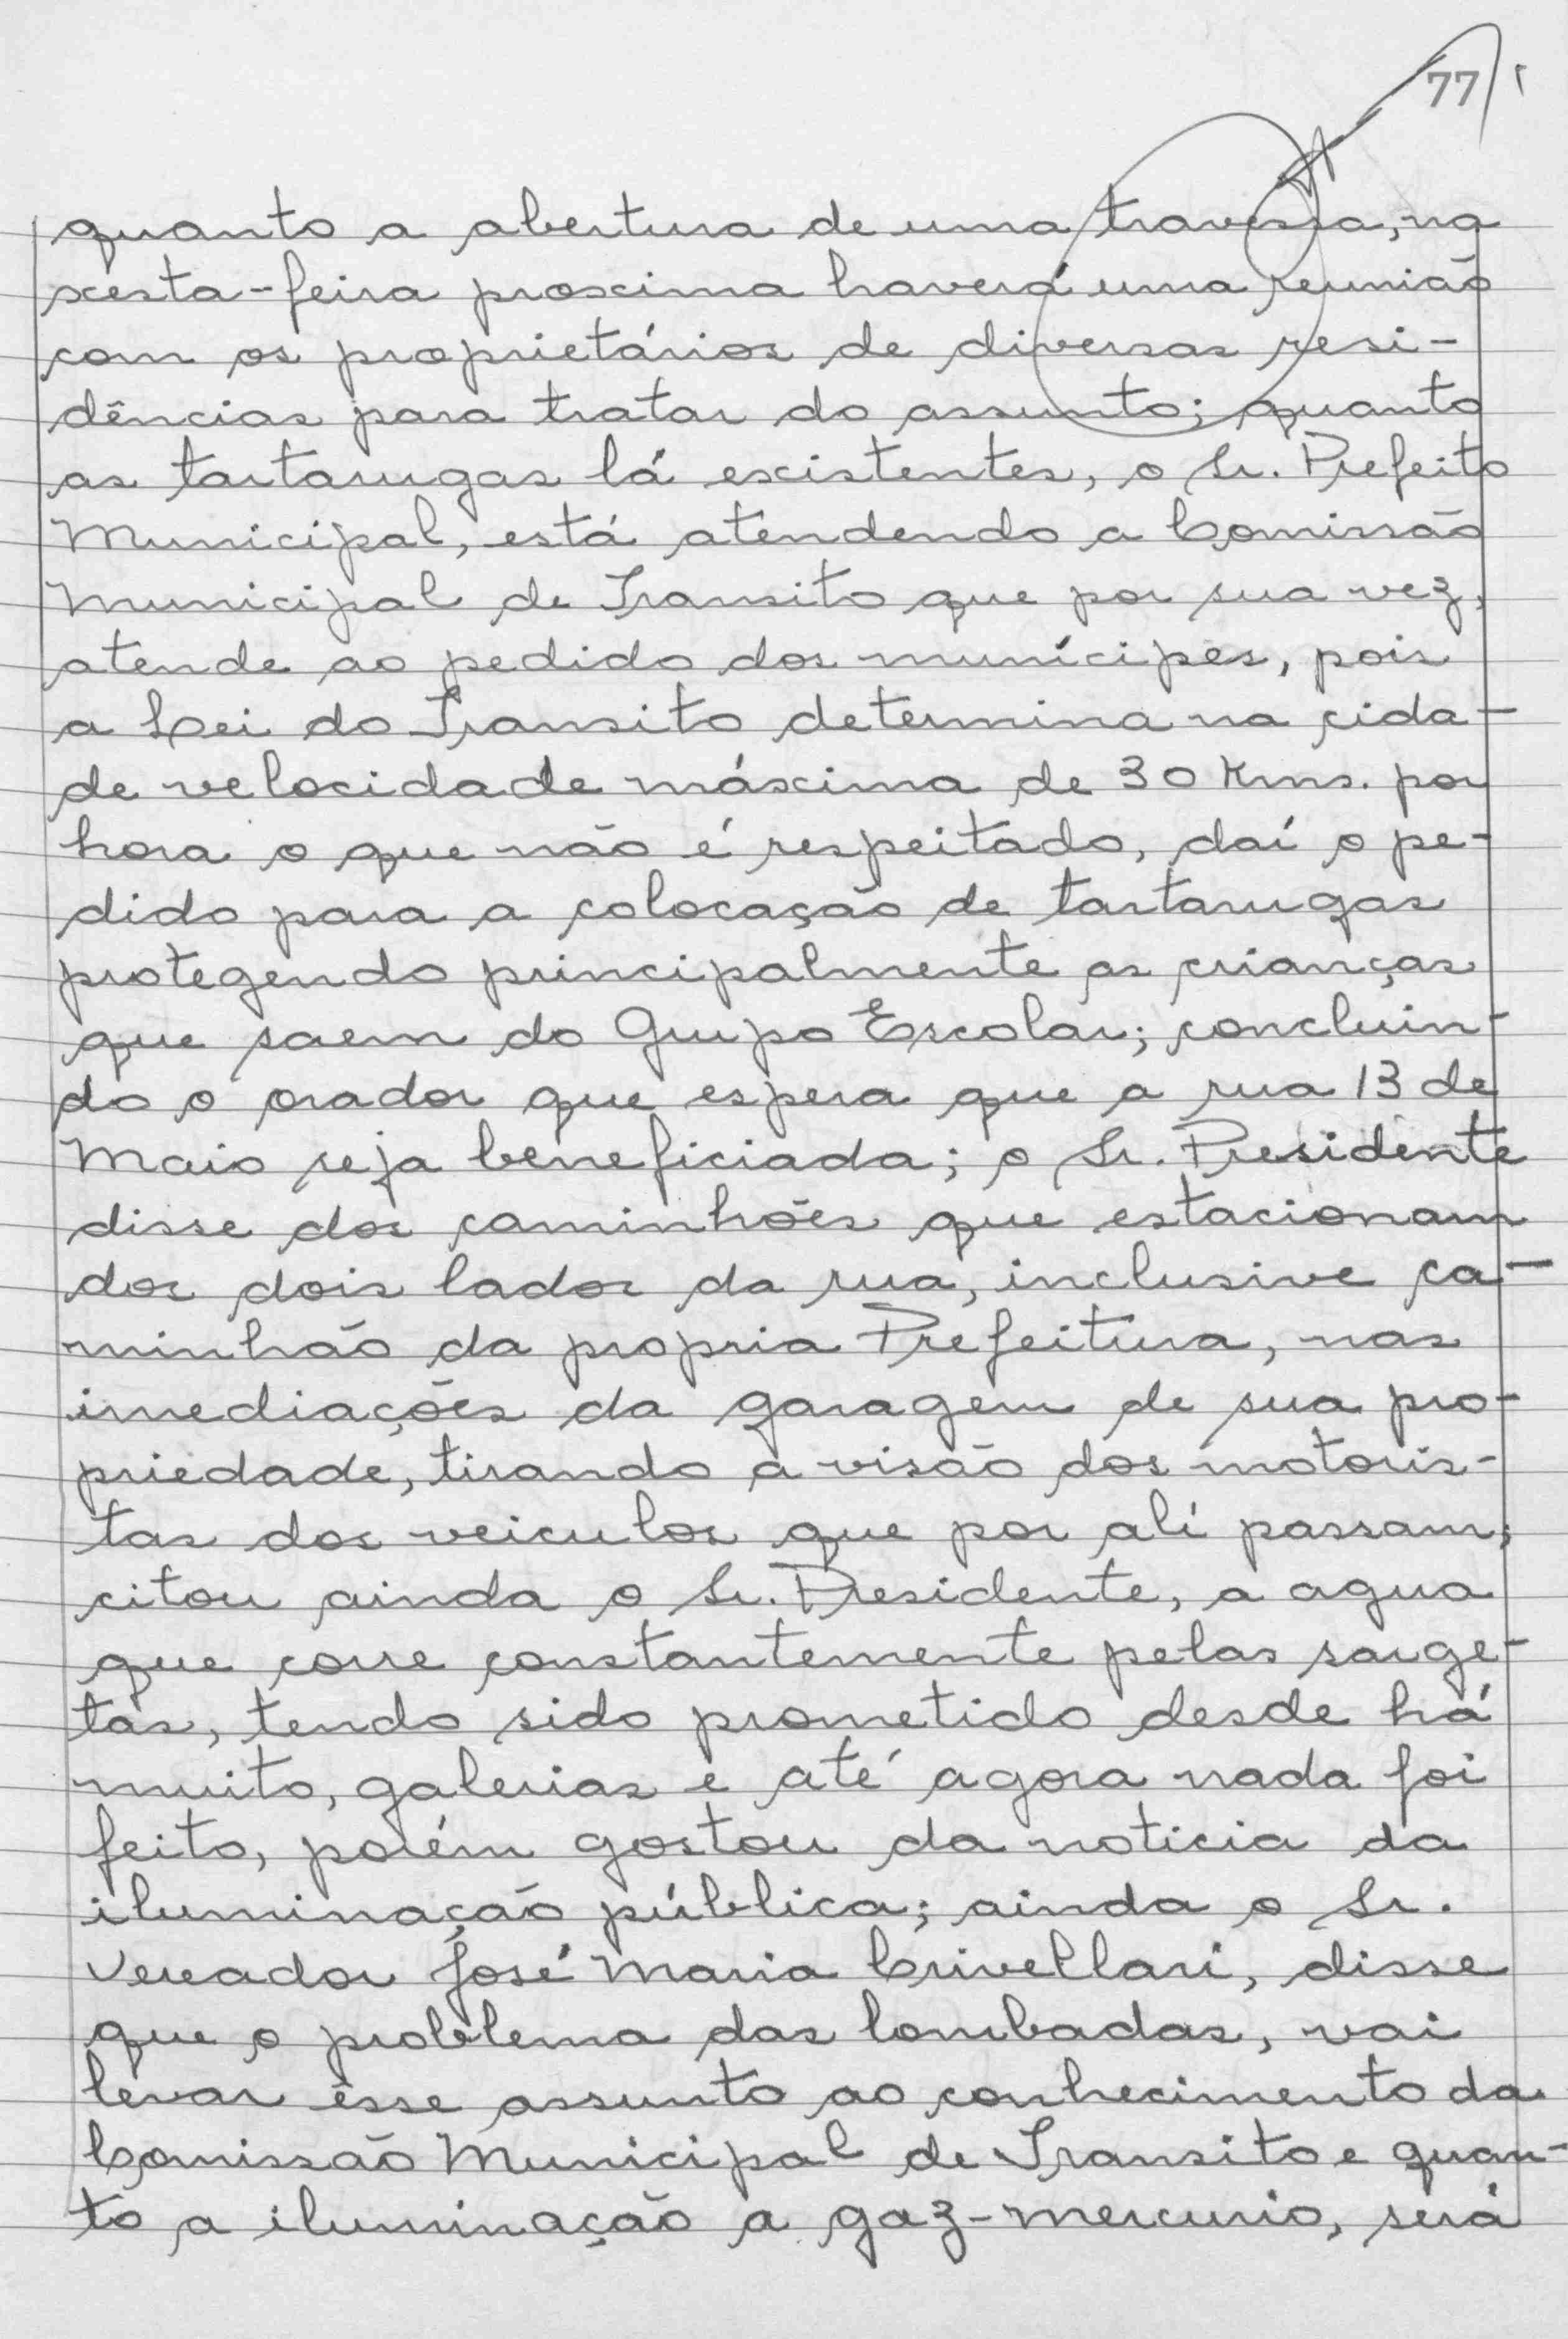 77
quanto a abertura de uma travessa, na
sexta-feira proxima haverá uma reunião
com os proprietários de diversas resi-
dências para tratar do assunto; quanto
as tartarugas lá existentes, o Sr. Prefeito
Municipal, está atendendo a Comissão
Municipal de Transito que por sua vez,
atende ao pedido dos munícipes, pois
a Lei do Transito determina na cida-
de velocidade máxima de 30 Kms. por
hora o que não é respeitado, daí o pe-
dido para a colocação de tartarugas
protegendo principalmente as crianças
que saem do Grupo Escolar; concluin-
do o orador que espera que a rua 13 de
Maio seja beneficiada; o Sr. Presidente
disse dos caminhões que estacionam
dos dois lados da rua, inclusive ca-
minhão da propria Prefeitura, nas
imediações da garagem de sua pro-
priedade, tirando a visão dos motoris-
tas dos veiculos que por alí passam;
citou ainda o Sr. Presidente, a agua
que corre constantemente pelas sarge-
tas, tendo sido prometido desde há
muito, galerias e até agora nada foi
feito, porém gostou da noticia da
iluminação pública; ainda o Sr.
Vereador José Maria Crivellari, disse
que o problema das lombadas, vai
levar êsse assunto ao conhecimento da
Comissão Municipal de Transito e quan-
to a iluminação a gaz-mercurio, será